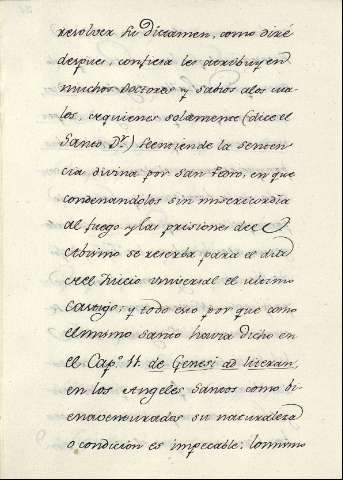 resolver su Dictamen, como diré
despues, confiesa les atribuyen
muchos Doctores y sabios alos cua-
les, requienes solamente (dice el
Santo Dr.) se entiende la senten-
cia divina por San Pedro, en que
condenandolos sin misericordia
al fuego y las prisiones del
Abismo se reserba para el dia
del Juicio universal el ultimo
Castigo; y todo eso por que como
el mismo santo havia dicho en
el Capº. 11. de Genesi ad literan,
en los Angeles Santos como bi-
enaventurados su naturaleza
o condicion es impecable: lo mismo